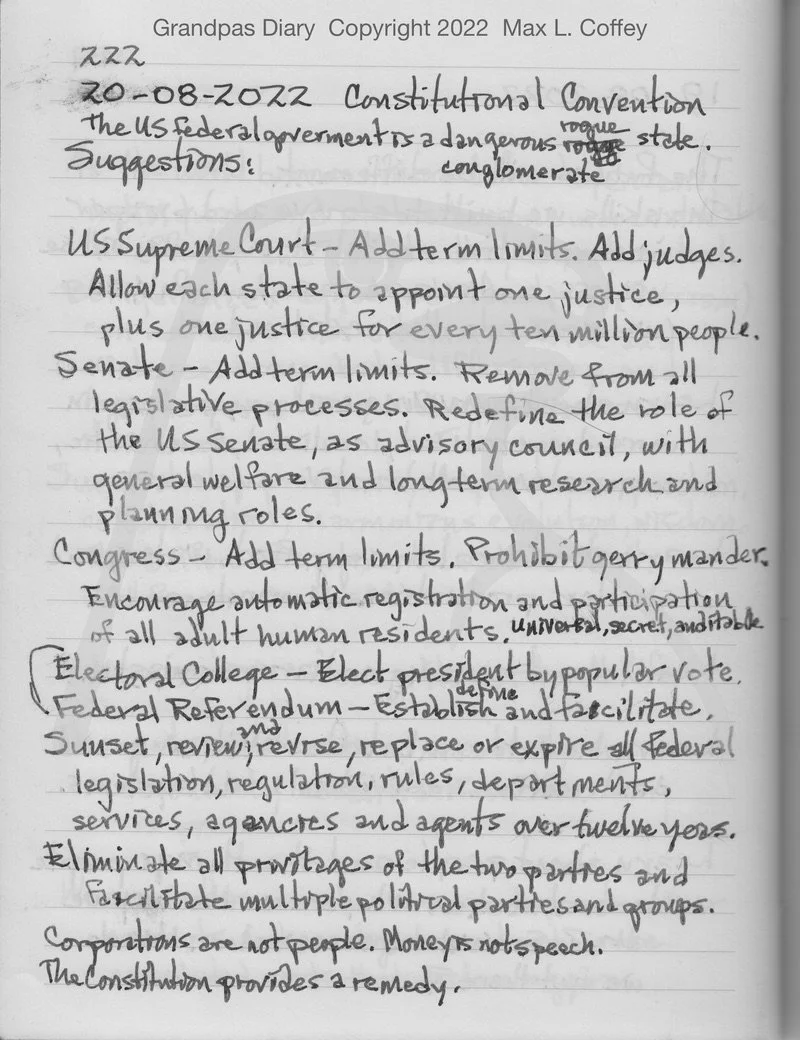 Grandpas Diary Copyright 2022 Max L. Coffey
222
20-08-2022 Constitutional Convention
The US federal goverment is a dangerous rogue state.
Suggestions: conglomerate
US Supreme Court - Add term limits. Add judges.
Allow each state to appoint one justice,
plus one justice for every ten million people.
Senate - Add term limits. Remove from all
legislative processes. Redefine the role of
the US Senate, as advisory council, with
general welfare and longterm research and
planning roles.
Congress - Add term limits. Prohibit gerrymander.
Encourage automatic registration and participation
of all adult human residents. Universal, secret, auditable
Electoral College - Elect president by popular vote.
Federal Referendum - Establish define and facilitate.
Sunset, review, and revise, replace or expire all federal
legislation, regulation, rules, departments,
services, agencies and agents over twelve years.
Eliminate all privilages of the two parties and
facilitate multiple political parties and groups.
Corporations are not people. Money is not speech.
The Constitution provides a remedy.